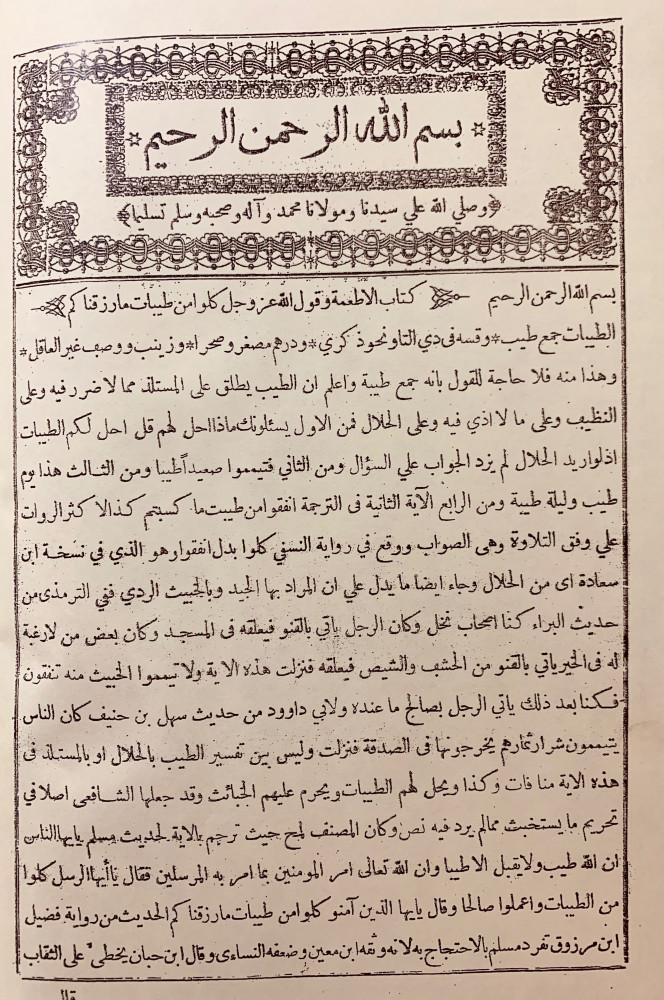 بسم الله الرحمن الرحيم
وصلي الله علي سيدنا ومولانا محمد وآله وصحبه وسلم تسليما
بسم الله الرحمن الرحيم كتاب الاطعمة وقول الله عز وجل كلوا من طيبات مارزقناكم
الطيبات جمع طيب * وقسه في ذي التا ونحو ذكري * ودرهم مصغر وصحرا * وزينب ووصف غير العاقل *
وهذا منه فلا حاجة للقول بانه جمع طيبة واعلم ان الطيب يطلق على المستلذ مما لا ضرر فيه وعلى
النظيف وعلى ما لا اذي فيه وعلى الحلال فمن الاول يسئلونك ماذا احل لهم قل احل لكم الطيبات
اذ لواريد الحلال لم يزد الجواب علي السؤال ومن الثاني فتيمموا صعيدا طيبا ومن الثالث هذا يوم
طيب وليلة طيبة ومن الرابع الآية الثانية في الترجمة انفقوا من طيبت ما كسبتم كذا لا كثر الروات
علي وفق التلاوة وهى الصواب ووقع في رواية النسفي كلوا بدل انفقوا وهو الذي في نسخة ابن
سعادة اى من الحلال وجاء ايضا ما يدل علي ان المراد بها الجيد وبالخبيث الردي ففي الترمذى من
حديث البراء كنا اصحاب نخل وكان الرجل ياتي بالقنو فيعلقه في المسجد وكان بعض من لارغبة
له في الخير ياتي بالقنو من الحشف والشيص فيعلقه فنزلت هذه الاية ولا تيمموا الخبيث منه تنفقون
فكنا بعد ذلك ياتي الرجل بصالح ما عنده ولابي داوود من حديث سهل بن حنيف كان الناس
يتيممون شرار ثمارهم يخرجونها في الصدقة فنزلت وليس بين تفسير الطيب بالحلال او بالمستلذ في
هذه الاية منافات وكذا ويحل لهم الطيبات ويحرم عليهم الخبائث وقد جعلها الشافعى اصلا في
تحريم ما يستخبث ممالم يرد فيه نص وكان المصنف لمح حيث ترجم بالاية لحديث مسلم يايها الناس
ان الله طيب ولا يقبل الا طيبا وان الله تعالى امر المومنين بما امر به المرسلين فقال ياأيها الرسل كلوا
من الطيبات واعملوا صالحا وقال يايها الذين آمنو كلوا من طيبات مارزقناكم الحديث من رواية فضيل
ابن مرزوق تفرد مسلم بالاحتجاج به لانه وثقه ابن معين وضعفه النساءى وقال ابن حبان يخطىء على الثقاب
قال